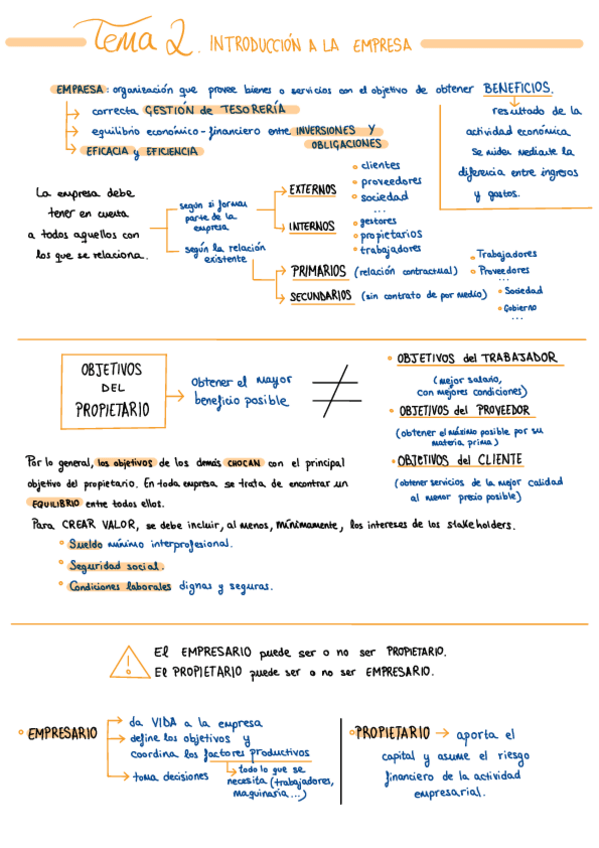 Tema 2. INTRODUCCIÓN A LA EMPRESA
EMPRESA: organización que provee bienes o servicios con el objetivo de obtener BENEFICIOS.
correcta GESTIÓN de TESORERÍA
equilibrio económico-financiero entre INVERSIONES Y
OBLIGACIONES
EFICACIA y EFICIENCIA
resultado de la
actividad económica.
Se miden mediante la
diferencia entre ingresos
y gastos.
La empresa debe
tener en cuenta
a todos aquellos con
los que se relaciona.
según si forman
parte de la
empresa
EXTERNOS
clientes
proveedores
sociedad
...
INTERNOS
gestores
propietarios
trabajadores
según la relación
existente
PRIMARIOS (relación contractual)
Trabajadores
Proveedores
...
SECUNDARIOS (sin contrato de por medio)
Sociedad
Gobierno
...
OBJETIVOS
DEL
PROPIETARIO
Obtener el mayor
beneficio posible
≠
OBJETIVOS del TRABAJADOR
(mejor salario,
con mejores condiciones)
OBJETIVOS del PROVEEDOR
(obtener el máximo posible por su
materia prima)
OBJETIVOS del CLIENTE
(obtener servicios de la mejor calidad
al menor precio posible)
Por lo general, los objetivos de los demás CHOCAN con el principal
objetivo del propietario. En toda empresa se trata de encontrar un
EQUILIBRIO entre todos ellos.
Para CREAR VALOR, se debe incluir, al menos, mínimamente, los intereses de los stakeholders.
Sueldo mínimo interprofesional.
Seguridad social.
Condiciones laborales dignas y seguras.
!
El EMPRESARIO puede ser o no ser PROPIETARIO.
El PROPIETARIO puede ser o no ser EMPRESARIO.
EMPRESARIO
da VIDA a la empresa
define los objetivos y
coordina los factores productivos
todo lo que se
necesita (trabajadores,
maquinaria...)
toma decisiones
PROPIETARIO → aporta el
capital y asume el riesgo
financiero de la actividad
empresarial.